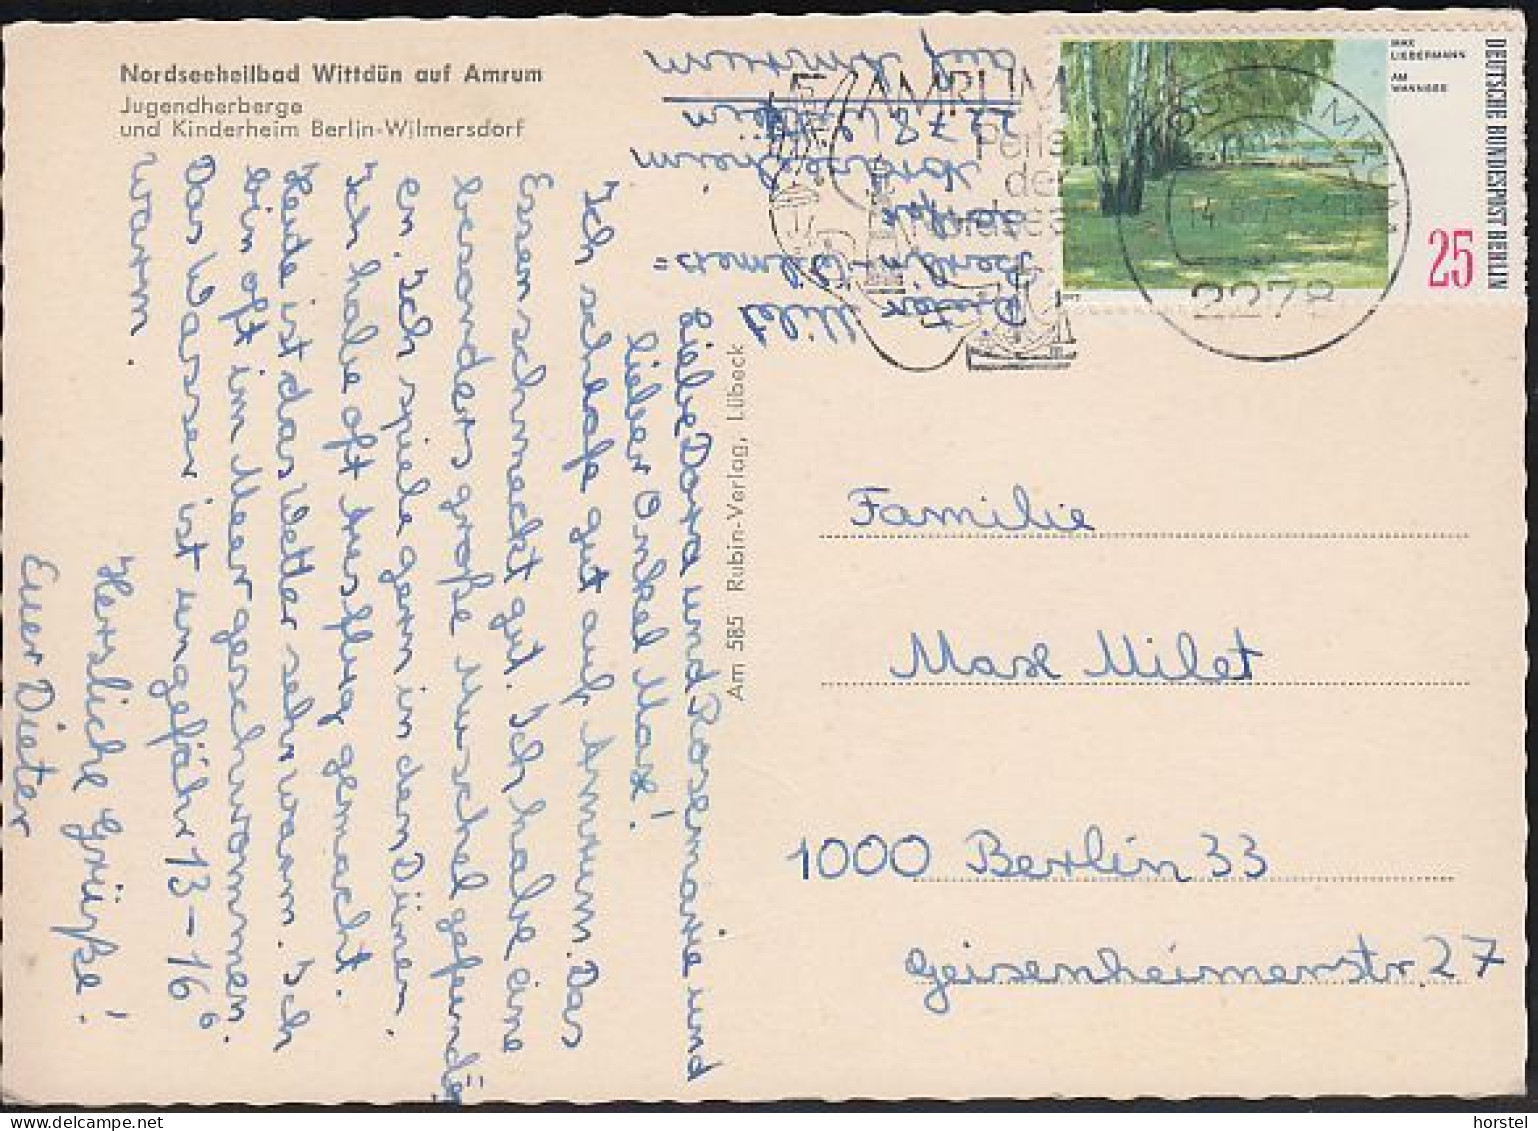 Nordseeheilbad Wittdün auf Amrum
Jugendherberge
und Kinderheim Berlin-Wilmersdorf
Dieter Milet
Berlin-Wilmers=
dorfer
Nordseeheim
2278
auf Amrum
Liebe Dora und Rosemarie und
lieber Onkel Max!
Ich schlafe gut auf Amrum. Das
Essen schmeckt gut. Ich habe eine
besonders große Muschel gefund=
en. Ich spiele gern in den Dünen.
Ich habe oft Ausflug gemacht.
Heute ist das Wetter sehr warm. Ich
bin oft im Meer geschwommen.
Das Wasser ist ungefähr 13-16°
warm.
Herzliche Grüße!
Euer Dieter
Am 585 Rubin-Verlag, Lübeck
AMRUM
Perle
der
Nordsee
2278
MAX
LIEBERMANN
AM
WANNSEE
DEUTSCHE BUNDESPOST BERLIN
25
Familie
Max Milet
1000 Berlin 33
Geisenheimerstr. 27
© oldthing.com/horstel